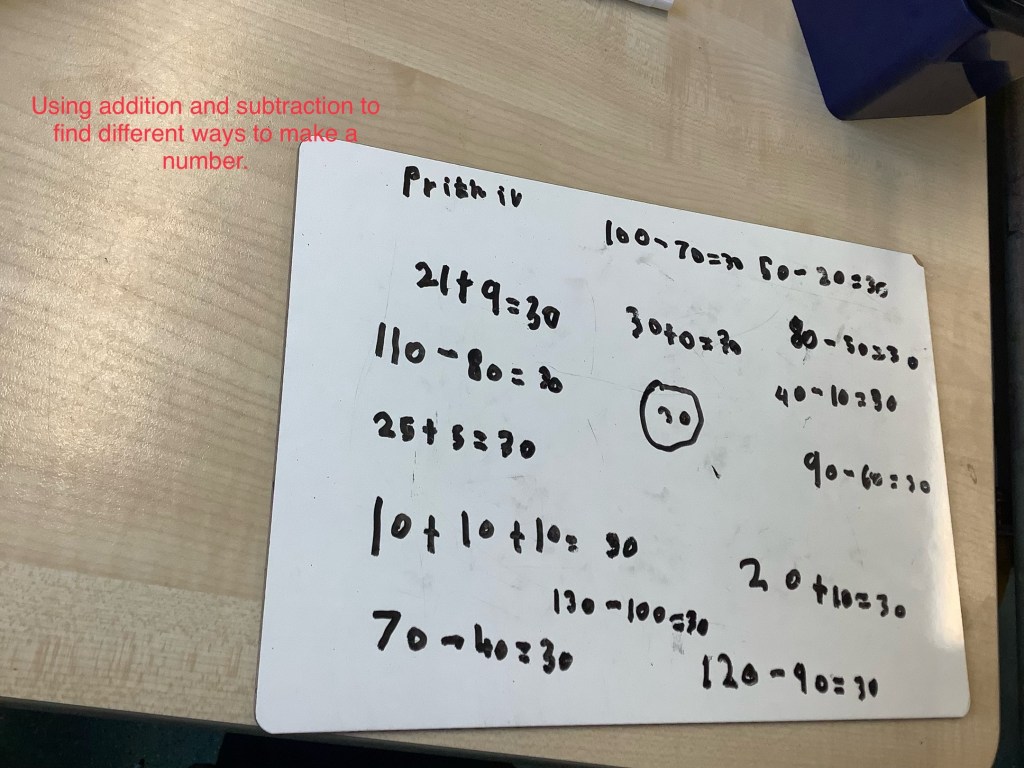 Using addition and subtraction to
find different ways to make a
number.
Prithiv
100-70=30
50-20=30
21+9=30
30+0=30
80-50=30
110-80=30
40-10=30
30
25+5=30
90-60=30
10+10+10=30
20+10=30
130-100=30
70-40=30
120-90=30